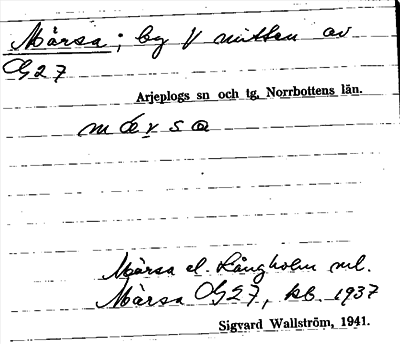 Mårsa; by V mitten av
G27
Arjeplogs sn och tg, Norrbottens län.
Mårsa el. Långholm nl.
Mårsa G27, kb. 1937
Sigvard Wallström, 1941.